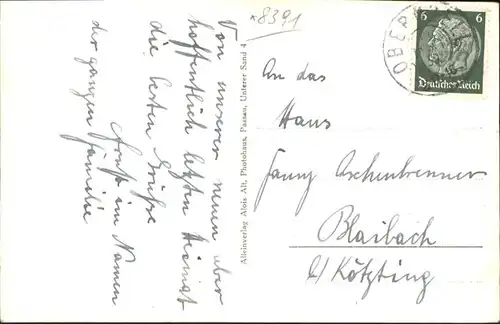 *8391
Von unserer neuen aber
hoffentlich letzten Heimat
die besten Grüße
Ernst im Namen
der ganzen Familie
Alleinverlag Alois Alt, Photohaus, Passau, Unterer Sand 4
6 6
Deutsches Reich
OBER
An das
Haus
Fanny Aschenbrenner
Blaibach
b/ Kötzting